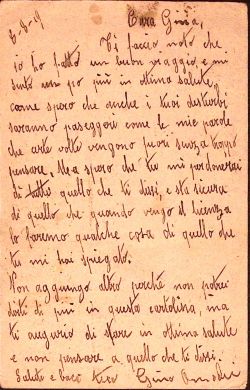 6-8-9
Cara Gina,
Ti faccio noto che
io ho fatto un buon viaggio, e mi
sento un po più in ottima salute,
come spero che anche i tuoi disturbi
saranno paseggeri come le mie parole
che certe volte vengono fuori senza troppo
pensare. Ma spero che tu mi perdonerai
di tutto quello che ti dissi, e sta sicura
di quello che quando vengo il licenza
lo faremo qualche cosa di quello che
tu mi hai spiegato.
Non aggiungo altro perchè non potrei
dirti di più in questa cartolina, ma
ti augurio di stare in ottima salute
e non pensare a quello che ti dissi.
Saluti e baci tuo Gino